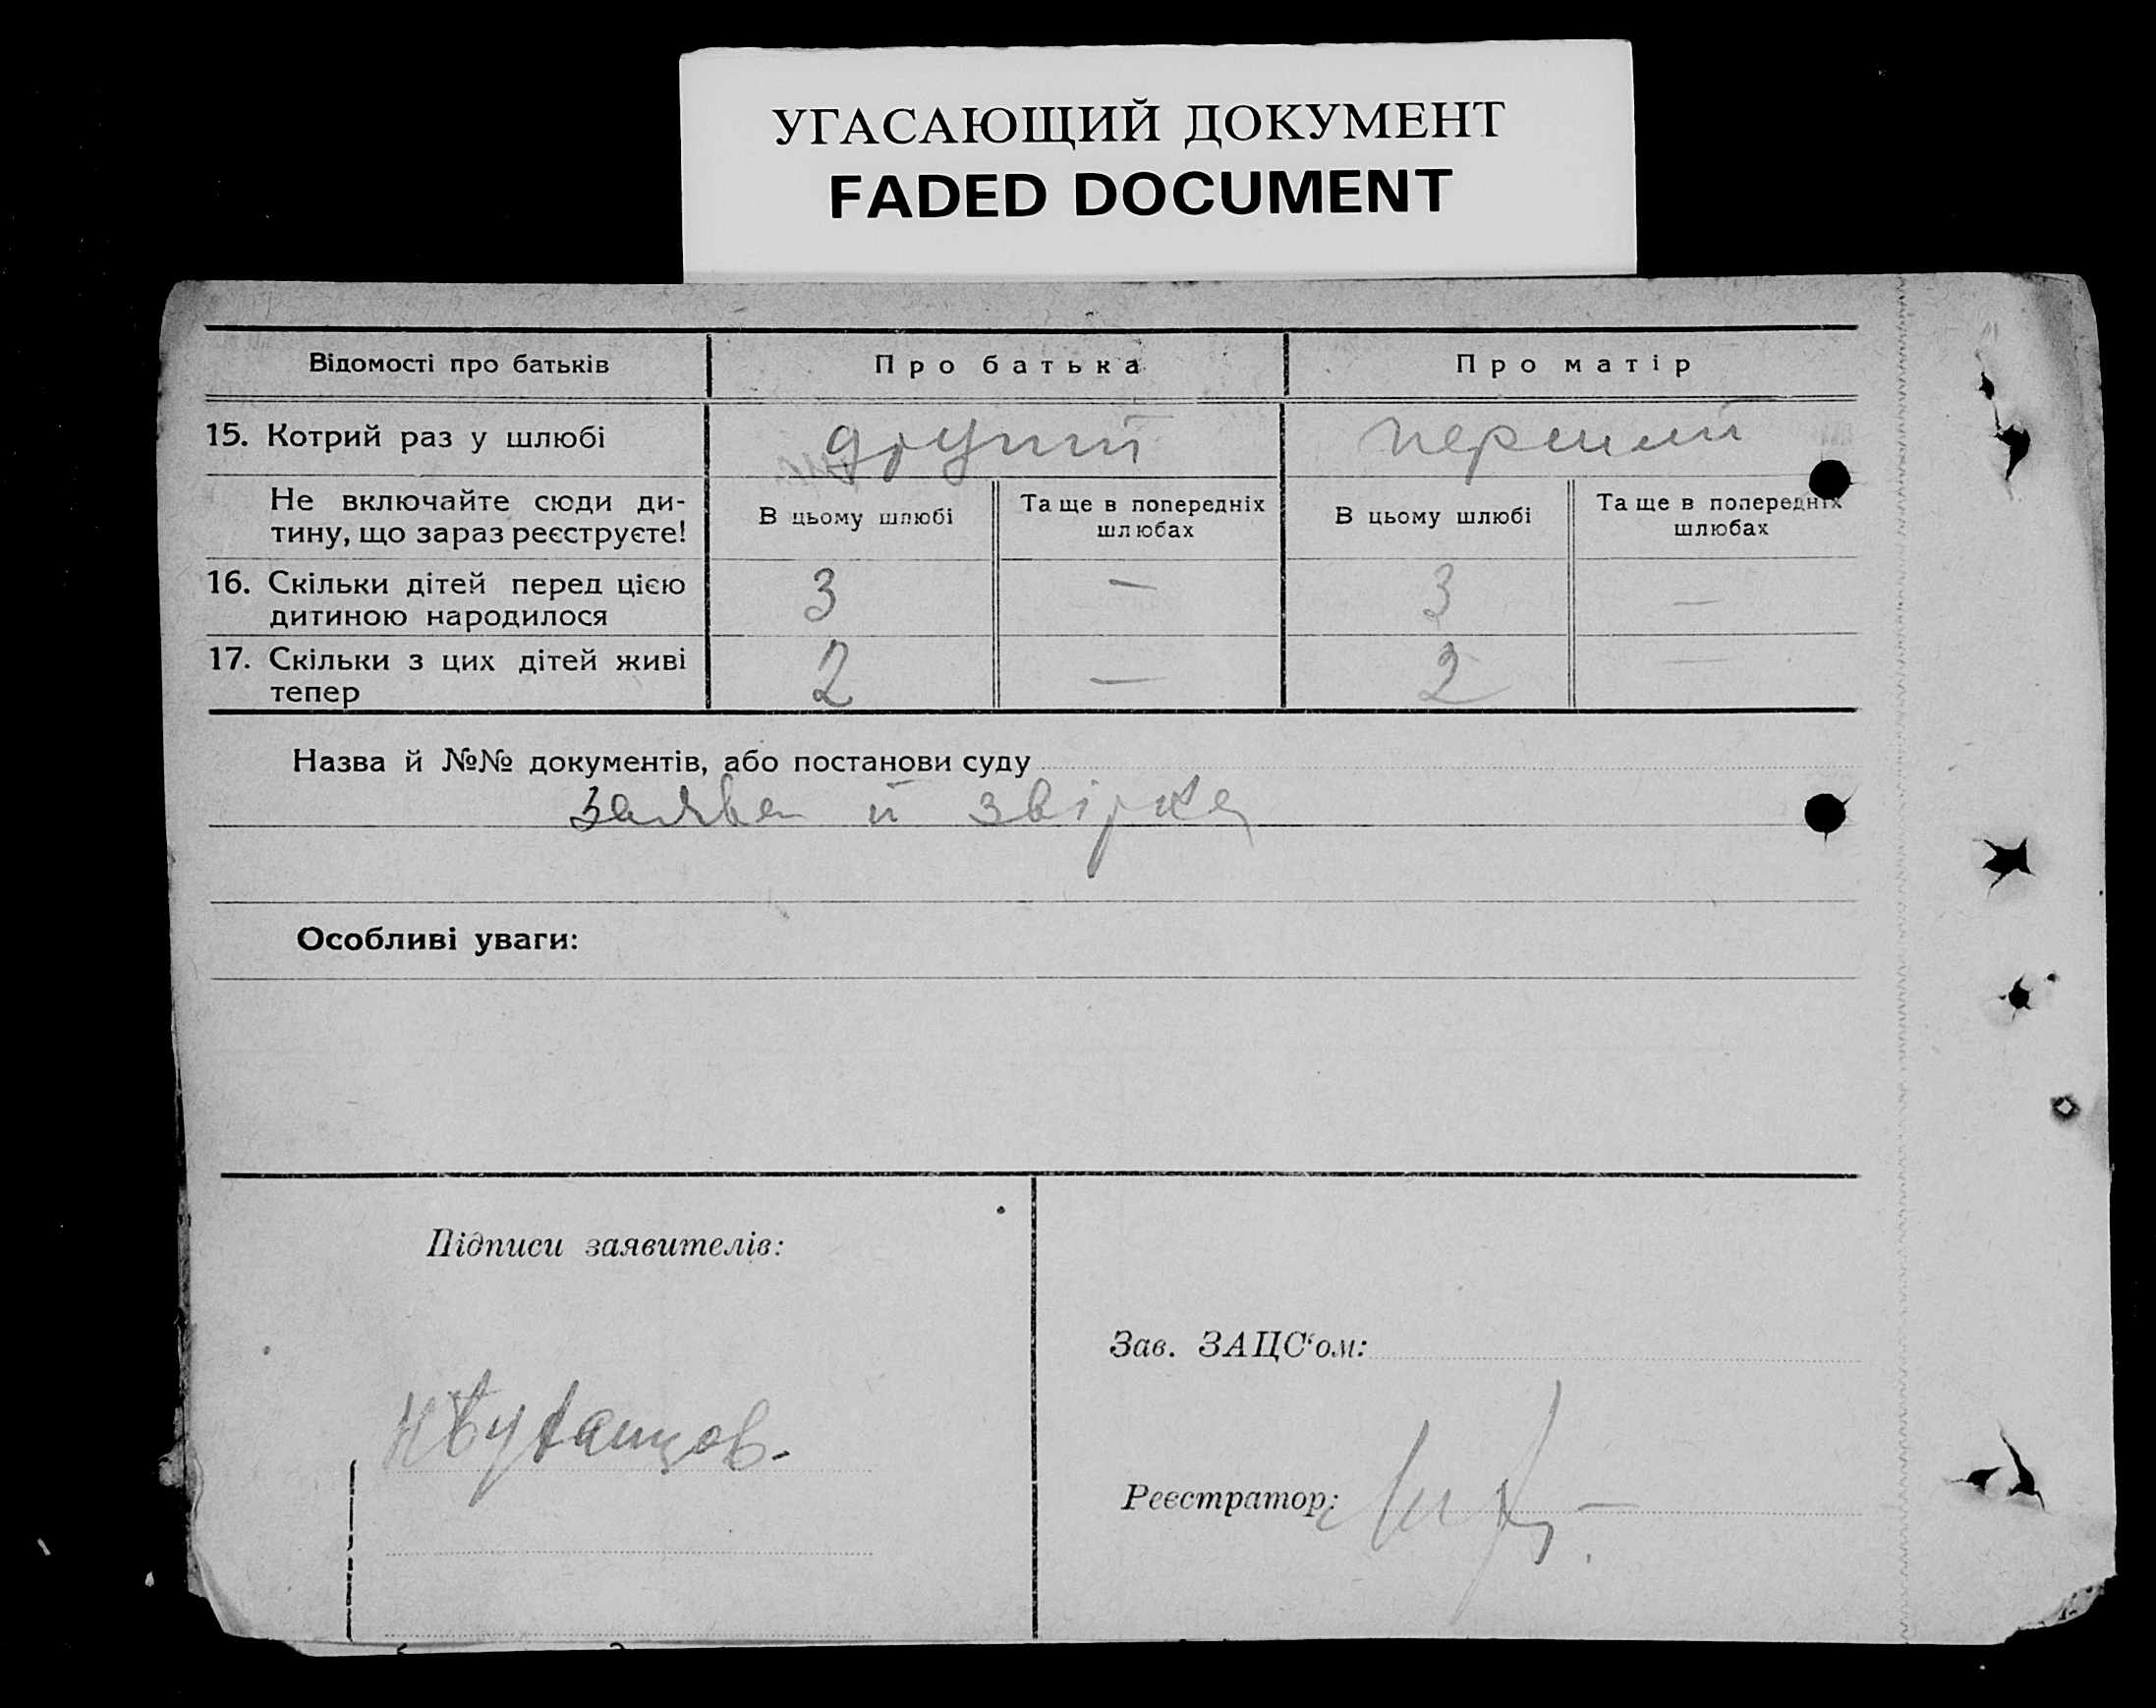 УГАСАЮЩИЙ ДОКУМЕНТ
FADED DOCUMENT
Відомості про батьків
Про батька
Про матір
15. Котрий раз у шлюбі
другий
перший
Не включайте сюди ди-
тину, що зараз реєструєте!
В цьому шлюбі
Та ще в попередніх
шлюбах
В цьому шлюбі
Та ще в попередніх
шлюбах
16. Скільки дітей перед цією
дитиною народилося
3
—
3
—
17. Скільки з цих дітей живі
тепер
2
—
2
—
Назва й №№ документів, або постанови суду
заява й звірка
Особливі уваги:
Підписи заявителів:
Зав. ЗАЦС‘ом:
Реєстратор: